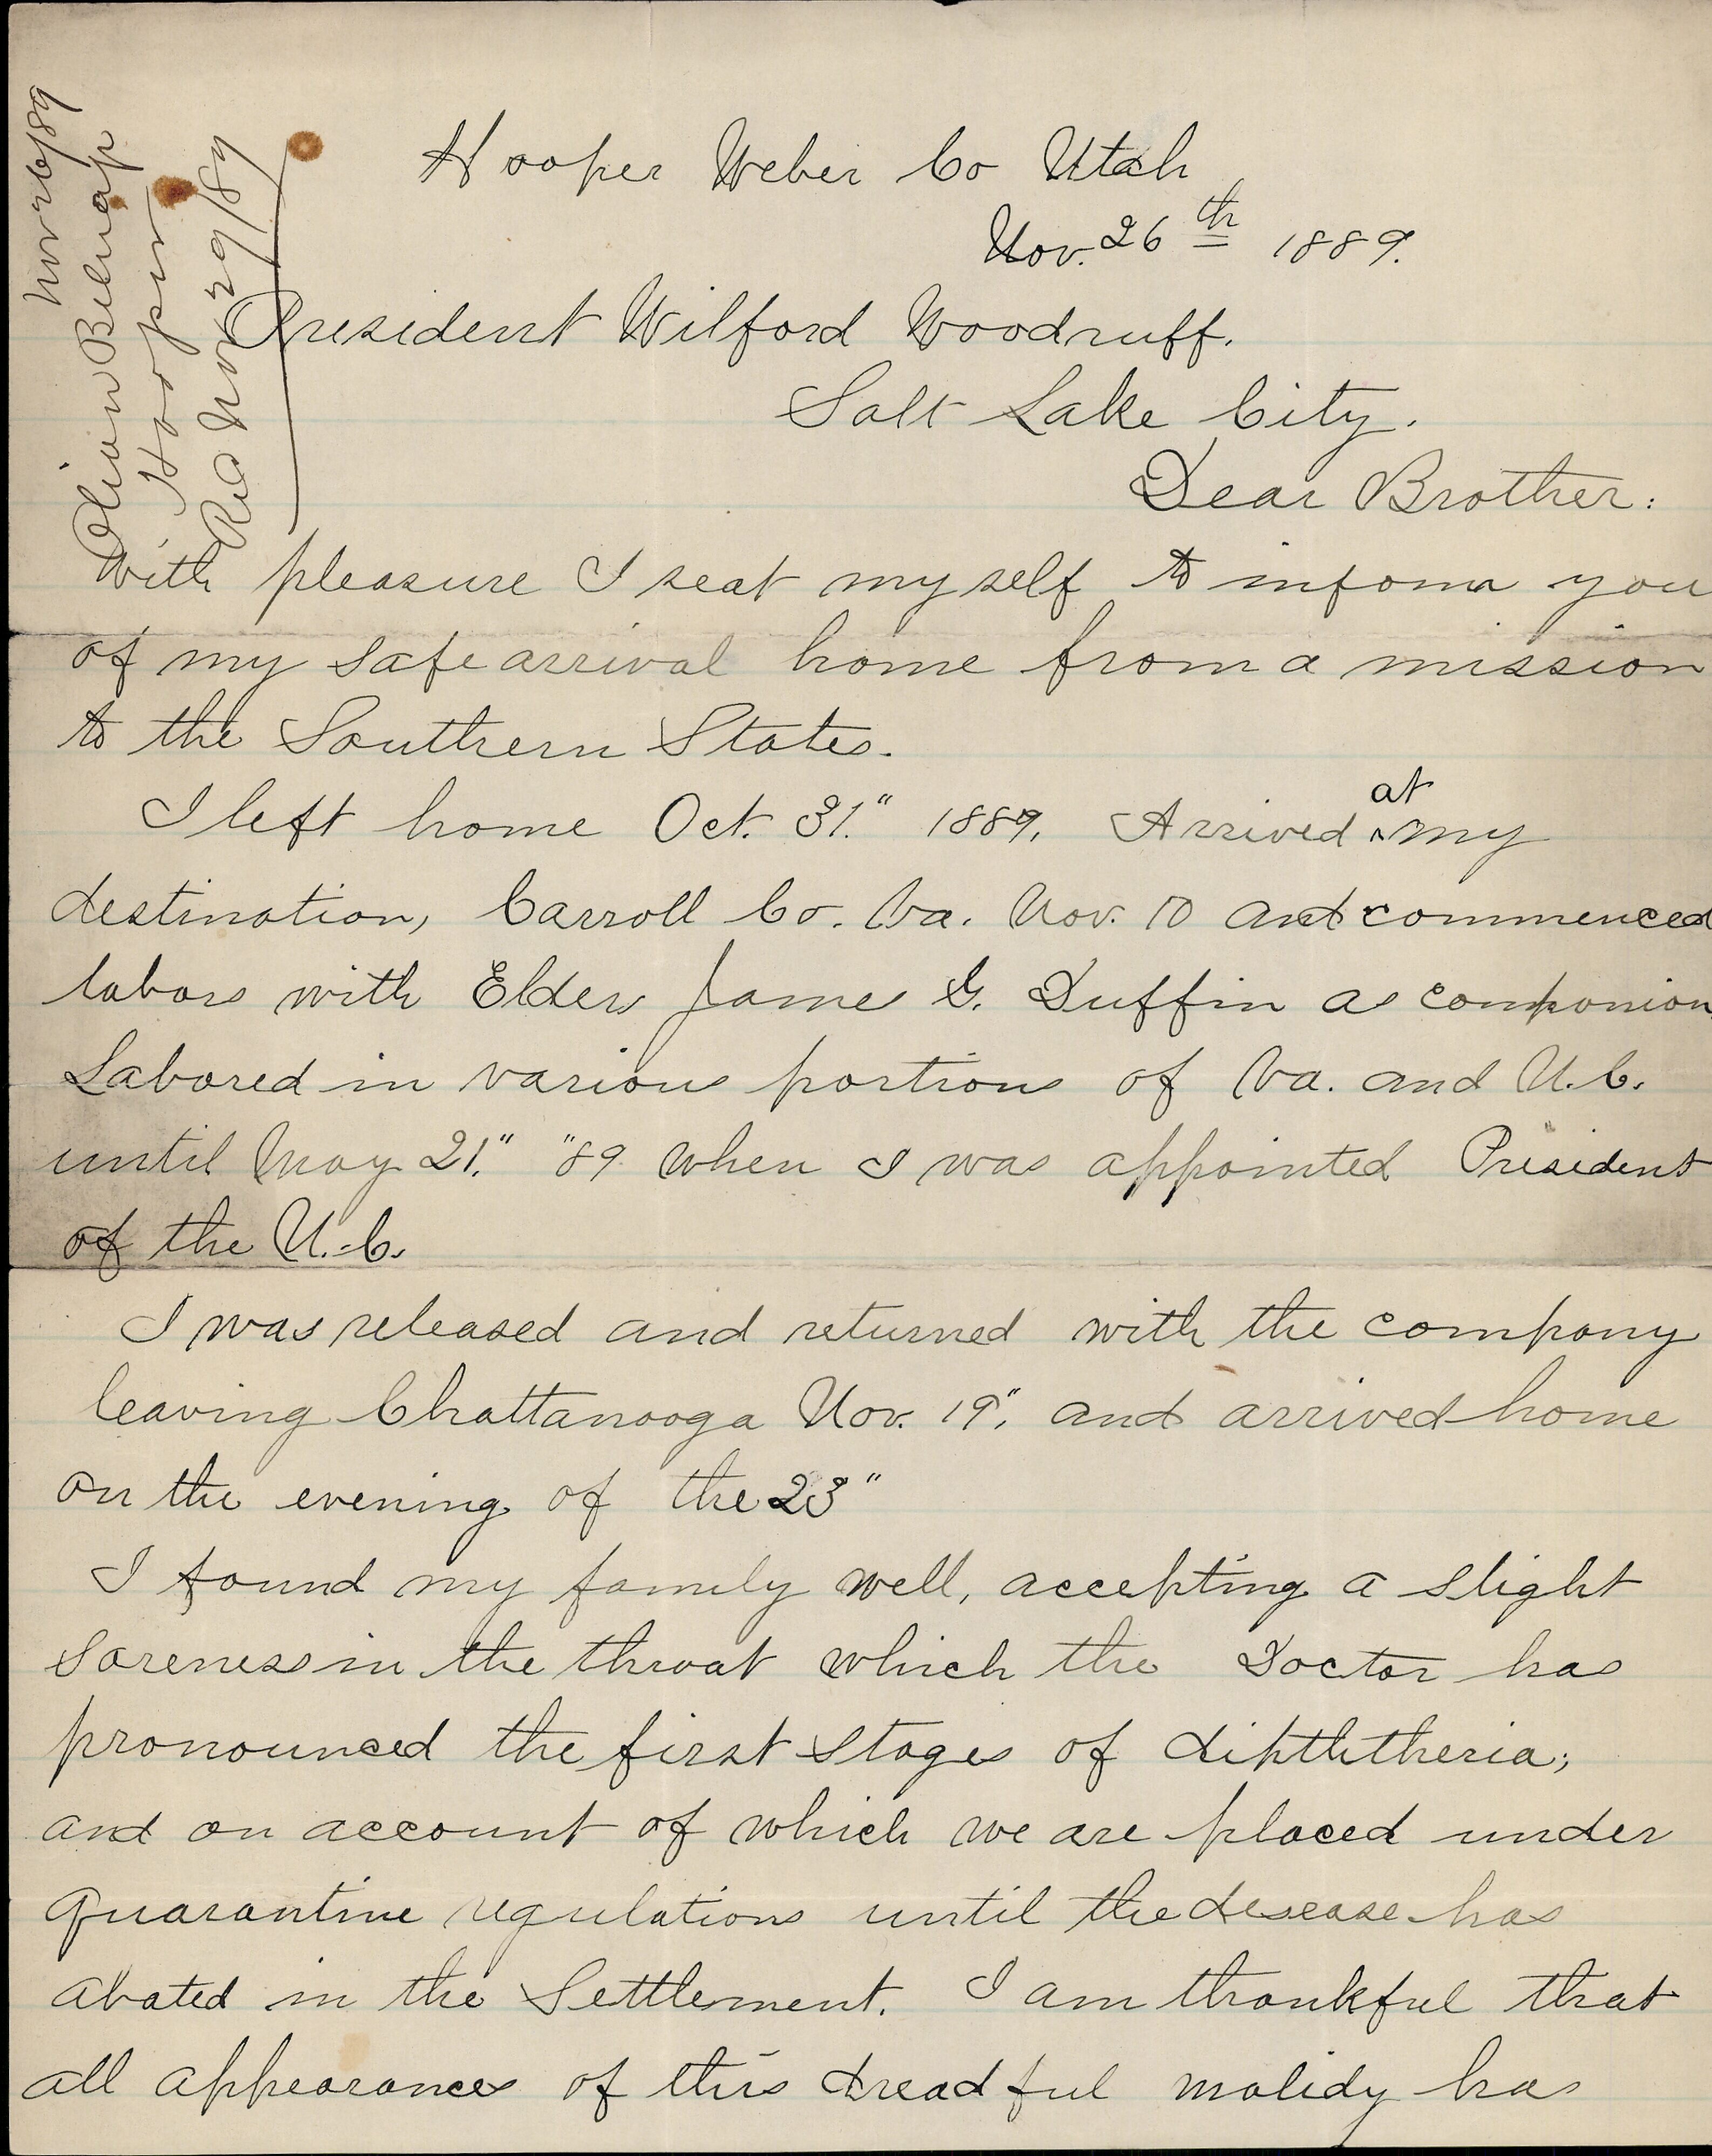 Nov 26/89
Olivian Belnap
Hooper
Recd Nov 29/89
Hooper Weber Co Utah
Nov. 26th 1889.
President Wilford Woodruff.
Salt Lake City.
Dear Brother:
With pleasure I seat myself to infom you
of my safe arrival home from a mission
to the Southern States.
I left home Oct. 31." 1889. Arrived at my
destination, Carroll Co. Va. Nov. 10 and commenced
labors with Elder James G. Duffin as companion.
Labored in various portions of Va. and N.C.
until May 21." "89 when I was appointed President
of the N.C.
I was released and returned with the company
leaving Chattanooga Nov. 19", and arrived home
on the evening of the 23"
I found my family well, accepting a slight
soreness in the throat which the Doctor has
pronounced the first stages of diphtheria;
and on account of which we are placed under
quarantine regulations until the desease has
abated in the Settlement. I am thankful that
all appearances of this dreadful malidy has